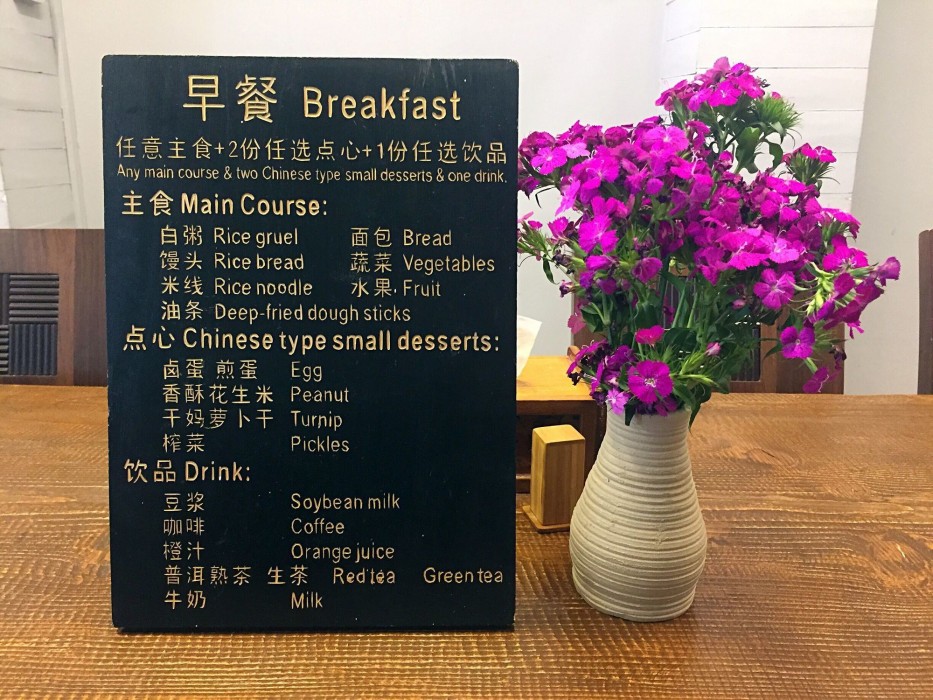 早餐 Breakfast
任意主食+2份任选点心+1份任选饮品
Any main course & two Chinese type small desserts & one drink.
主食 Main Course:
白粥 Rice gruel 面包 Bread
馒头 Rice bread 蔬菜 Vegetables
米线 Rice noodle 水果 Fruit
油条 Deep-fried dough sticks
点心 Chinese type small desserts:
卤蛋 煎蛋 Egg
香酥花生米 Peanut
干妈萝卜干 Turnip
榨菜 Pickles
饮品 Drink:
豆浆 Soybean milk
咖啡 Coffee
橙汁 Orange juice
普洱熟茶 生茶 Red tea Green tea
牛奶 Milk